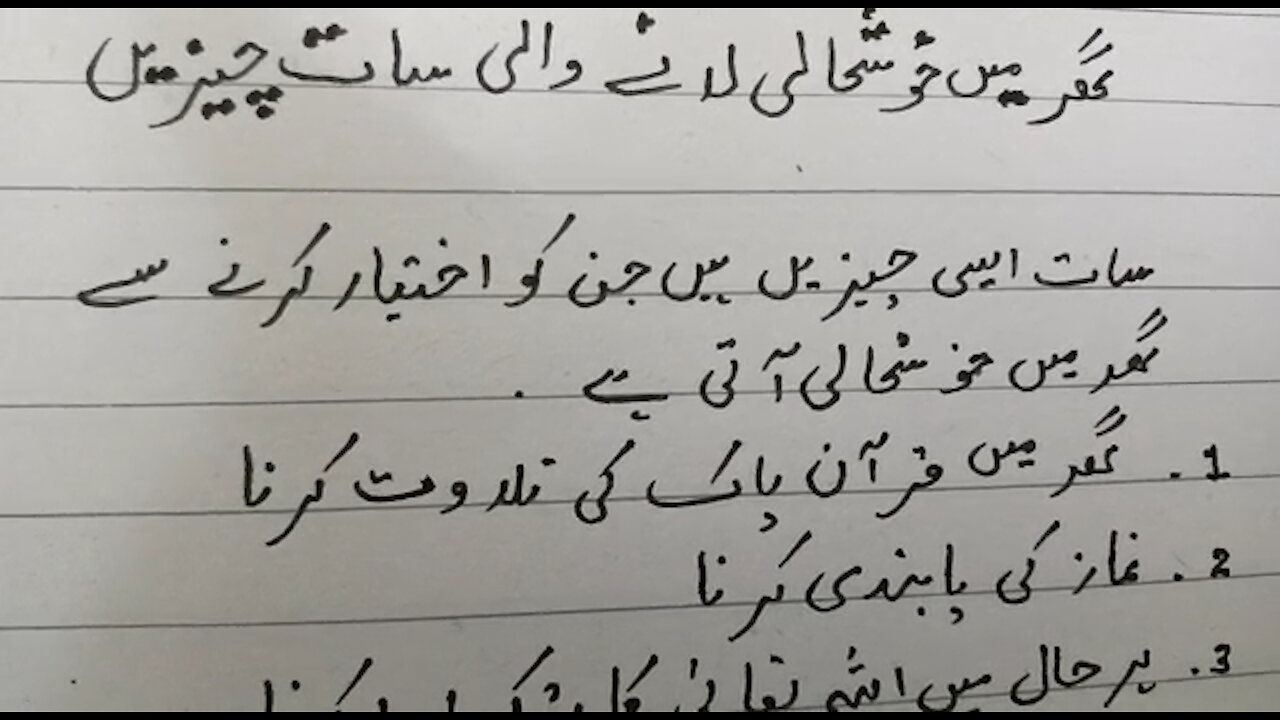 گھر میں خوشحالی لانے والی سات چیزیں
سات ایسی چیزیں ہیں جن کو اختیار کرنے سے
گھر میں خوشحالی آتی ہے .
1. گھر میں قرآن پاک کی تلاوت کرنا
2. نماز کی پابندی کرنا
3. ہر حال میں اللہ تعالیٰ کا شکر ادا کرنا